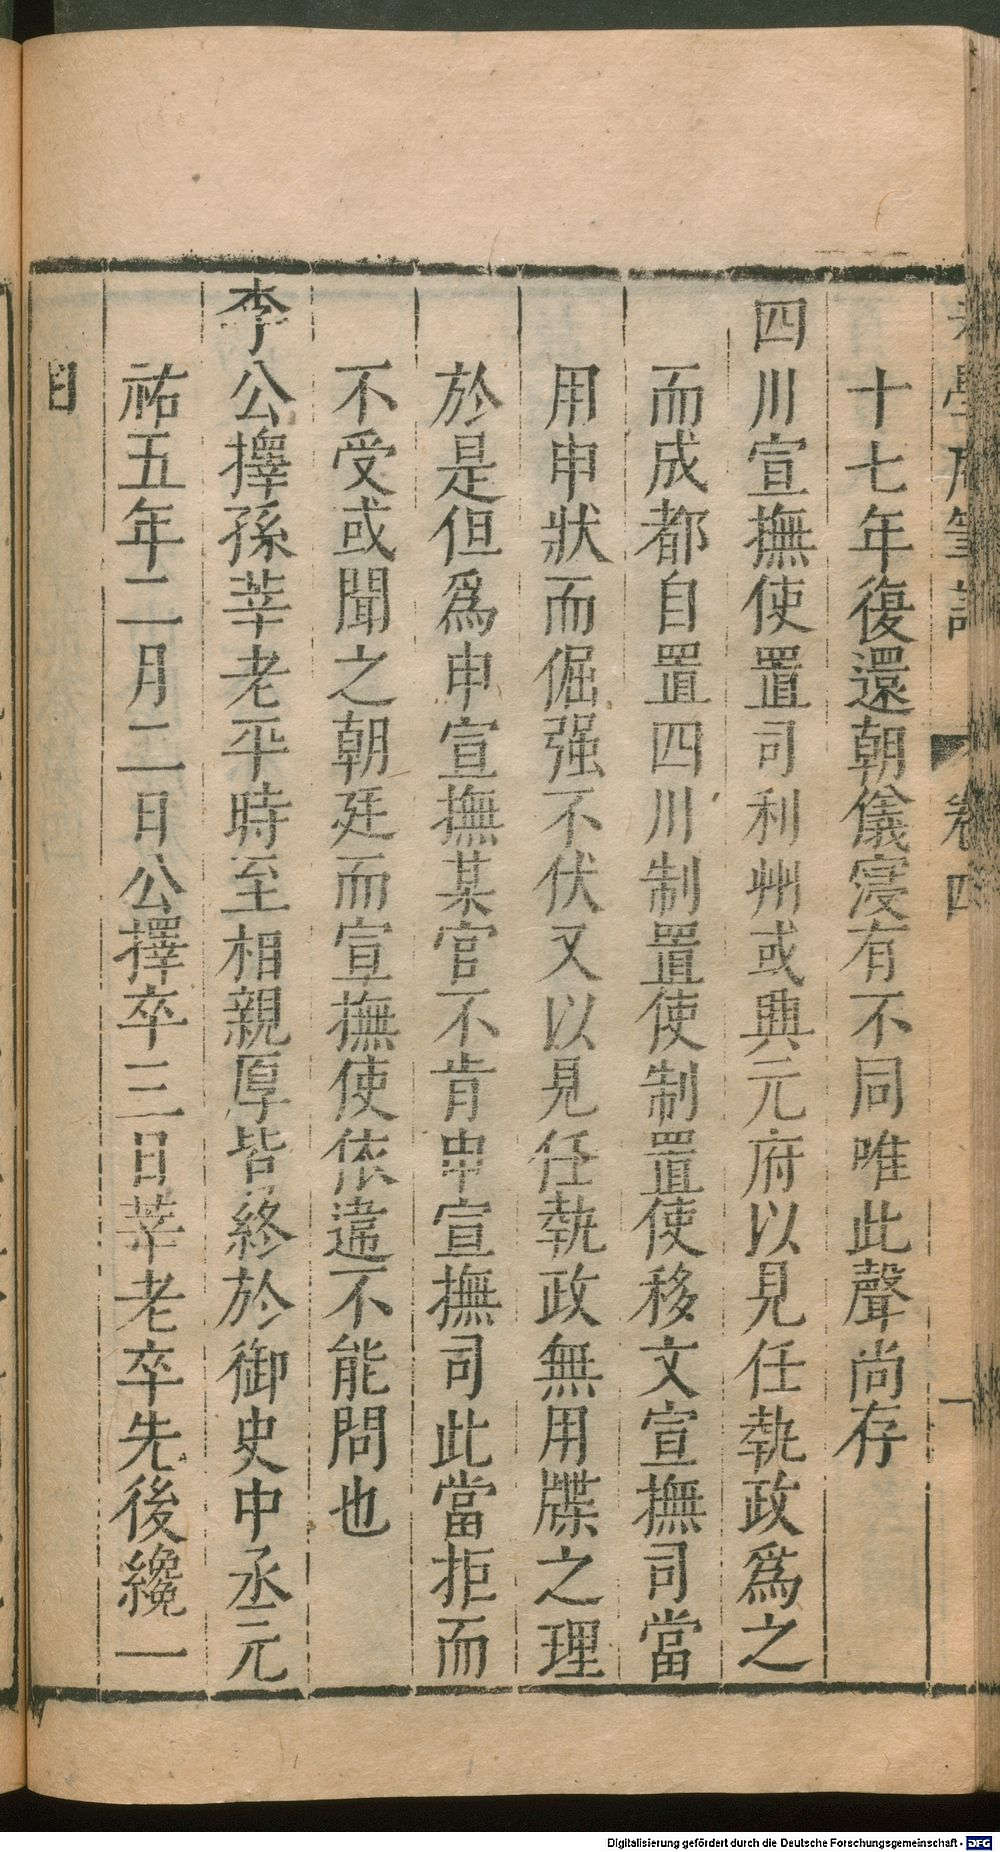 老學庵筆記 卷四 一
十七年復還朝儀寖有不同唯此聲尚存
四川宣撫使置司利州或興元府以見任執政爲之
而成都自置四川制置使制置使移文宣撫司當
用申狀而倔强不伏又以見任執政無用牒之理
於是但爲申宣撫某官不肯申宣撫司此當拒而
不受或聞之朝廷而宣撫使依違不能問也
李公擇孫莘老平時至相親厚皆終於御史中丞元
祐五年二月二日公擇卒三日莘老卒先後纔一
日
Digitalisierung gefördert durch die Deutsche Forschungsgemeinschaft - DFG